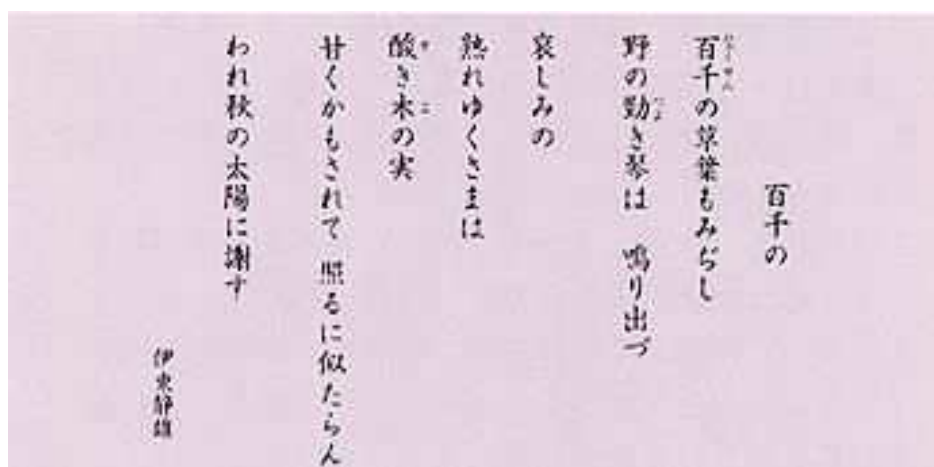 百千の
百千の草葉もみぢし
野の勁き琴は　鳴り出づ
哀しみの
熟れゆくさまは
酸き木の実
甘くかもされて　照るに似たらん
われ秋の太陽に謝す
伊東静雄